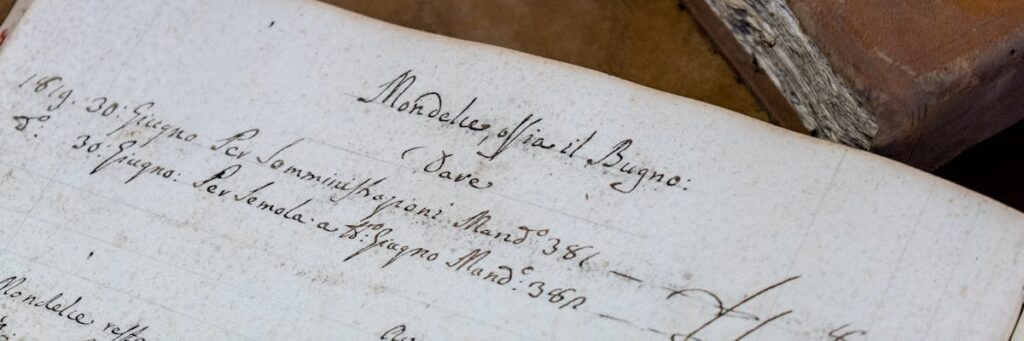 Mondelie, ossia il Bugno:
Dare
1819. 30: Giugno Per Somministrazioni Mand:º 381
d:º 30: Giugno: Per Semola a Giugno Mand:º 382
Mondelie